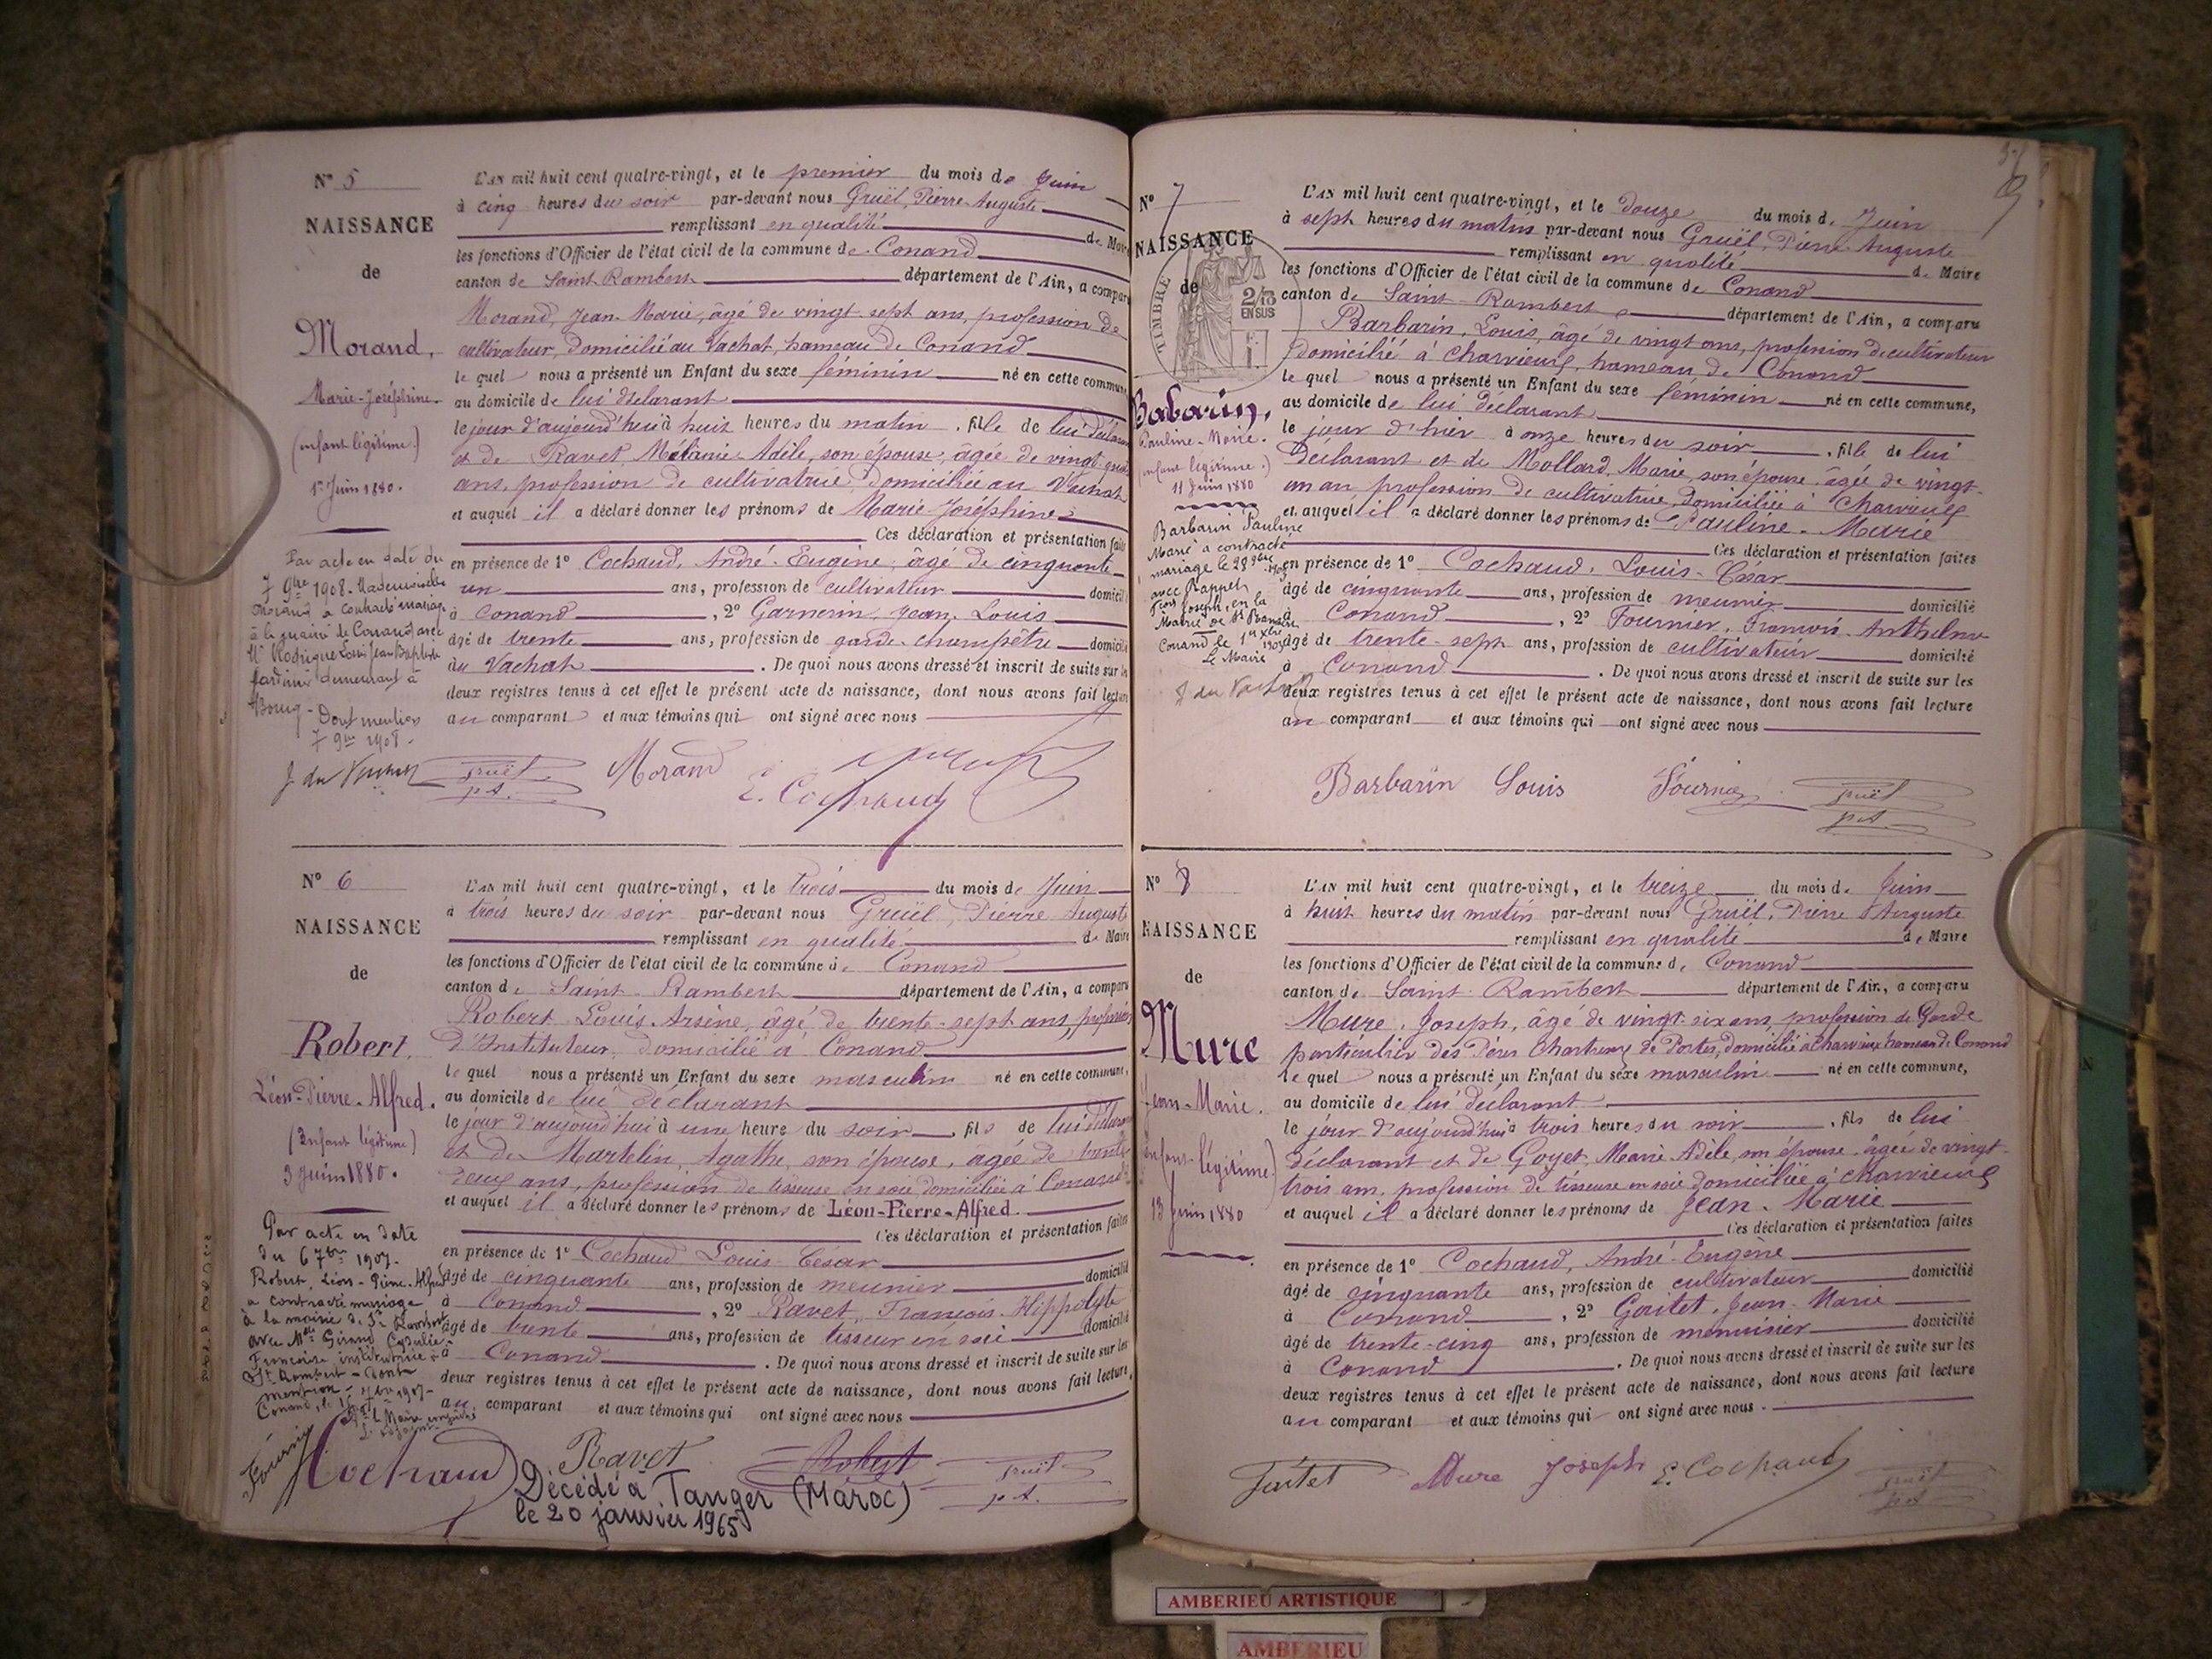 N° 5
NAISSANCE
de
Morand,
Marie-Joséphine.
(enfant légitime.)
1er Juin 1880.
Par acte en date du
7 9bre 1908. Mademoiselle
Morand a contracté mariage
à la mairie de Conand avec
Mr Rodrigue Louis Jean Baptiste
Jardinier demeurant à
Bourg -
Dont mention
7 9bre 1908.
L'AN mil huit cent quatre-vingt, et le premier du mois de Juin
à cinq heures du soir par-devant nous Gruël, Pierre-Auguste
remplissant en qualité de Mair
les fonctions d'Officier de l'état civil de la commune de Conand
canton de Saint Rambert département de l'Ain, a compar
Morand, Jean-Marie, âgé de vingt-sept ans, profession de
cultivateur, domicilié au Vachat, hameau de Conand
le quel nous a présenté un Enfant du sexe féminin né en cette commune
au domicile de lui déclarant
le jour d'aujourd'hui à huit heures du matin, fille de lui déclarant
et de Ravet, Mélanie Adèle, son épouse, âgée de vingt
ans, profession de cultivatrice, domiciliée au Vachat
et auquel il a déclaré donner les prénoms de Marie-Joséphine
Ces déclaration et présentation fait
en présence de 1° Cochaud, André-Eugène, âgé de cinquante
un ans, profession de cultivateur domicil
à Conand, 2° Garnerin, Jean-Louis
âgé de trente ans, profession de garde-champêtre domicil
au Vachat. De quoi nous avons dressé et inscrit de suite sur les
deux registres tenus à cet effet le présent acte de naissance, dont nous avons fait lecture
au comparant et aux témoins qui ont signé avec nous
J. du Vachat Gruël p.A. Morand E. Cochaud
N° 6
NAISSANCE
de
Robert,
Léon-Pierre-Alfred.
(Enfant légitime)
3 Juin 1880.
Par acte en date
du 6 7bre 1907.
Robert, Léon-Pierre-Alfred
a contracté mariage
à la mairie de St Rambert
avec Melle Girand
Françoise, institutrice à
St Rambert - Dont
mention
Conand, le 7bre 1907-
L'AN mil huit cent quatre-vingt, et le trois du mois de Juin
à trois heures du soir par-devant nous Gruël, Pierre-Auguste
remplissant en qualité de Maire
les fonctions d'Officier de l'état civil de la commune de Conand
canton de Saint-Rambert département de l'Ain, a comparu
Robert Louis-Arsène, âgé de trente-sept ans, profession
d'Instituteur, domicilié à Conand
le quel nous a présenté un Enfant du sexe masculin né en cette commune,
au domicile de lui déclarant
le jour d'aujourd'hui à une heure du soir, fils de lui déclarant
et de Martelin, Agathe, son épouse, âgée de trente-
deux ans, profession de tisseuse en soie domiciliée à Conand
et auquel il a déclaré donner les prénoms de Léon-Pierre-Alfred.
Ces déclaration et présentation faites
en présence de 1° Cochaud Louis-César
âgé de cinquante ans, profession de meunier domicilié
à Conand, 2° Ravet, François-Hippolyte
âgé de trente ans, profession de tisseur en soie domicilié
à Conand. De quoi nous avons dressé et inscrit de suite sur les
deux registres tenus à cet effet le présent acte de naissance, dont nous avons fait lecture,
au comparant et aux témoins qui ont signé avec nous
Cochaud Ravet Robert Gruël p.A.
Décédé à Tanger (Maroc)
le 20 janvier 1965
N° 7
NAISSANCE
de
TIMBRE
2/10
EN SUS
Babarin,
Pauline-Marie.
(enfant légitime.)
11 Juin 1880
Barbarin Pauline
Marie a contracté
mariage le 28 9bre 1903
avec Rappet
Joseph, en la
Mairie de St Rambert
Conand le 1er Xbre 1903
Le Maire
J du Vachat
L'AN mil huit cent quatre-vingt, et le Douze du mois de Juin
à sept heures du matin par-devant nous Gruël, Pierre-Auguste
remplissant en qualité de Maire
les fonctions d'Officier de l'état civil de la commune de Conand
canton de Saint-Rambert département de l'Ain, a comparu
Barbarin, Louis, âgé de vingt ans, profession de cultivateur
domicilié à Charvieux, hameau de Conand
le quel nous a présenté un Enfant du sexe féminin né en cette commune,
au domicile de lui déclarant
le jour d'hier à onze heures du soir, fille de lui
déclarant et de Mollard, Marie, son épouse, âgée de vingt-
un an, profession de cultivatrice, domiciliée à Charvieux
et auquel il a déclaré donner les prénoms de Pauline-Marie
Ces déclaration et présentation faites
en présence de 1° Cochaud, Louis-César
âgé de cinquante ans, profession de meunier domicilié
à Conand, 2° Fournier, François-Anthelme
âgé de trente-sept ans, profession de cultivateur domicilié
à Conand. De quoi nous avons dressé et inscrit de suite sur les
deux registres tenus à cet effet le présent acte de naissance, dont nous avons fait lecture
au comparant et aux témoins qui ont signé avec nous
Barbarin Louis Fournier Gruël p.A.
N° 8
NAISSANCE
de
Mure
Jean-Marie.
(enfant légitime)
13 Juin 1880
L'AN mil huit cent quatre-vingt, et le treize du mois de Juin
à huit heures du matin par-devant nous Gruël, Pierre Auguste
remplissant en qualité de Maire
les fonctions d'Officier de l'état civil de la commune de Conand
canton de Saint-Rambert département de l'Ain, a comparu
Mure, Joseph, âgé de vingt-six ans, profession de Garde
particulier des Pères Chartreux de Portes, domicilié à Charvieux hameau de Conand
le quel nous a présenté un Enfant du sexe masculin né en cette commune,
au domicile de lui déclarant
le jour d'aujourd'hui à trois heures du soir, fils de lui
déclarant et de Goyet, Marie Adèle, son épouse, âgée de vingt-
trois ans, profession de tisseuse en soie domiciliée à Charvieux
et auquel il a déclaré donner les prénoms de Jean-Marie
Ces déclaration et présentation faites
en présence de 1° Cochaud, André-Eugène
âgé de cinquante ans, profession de cultivateur domicilié
à Conand, 2° Goitet, Jean-Marie
âgé de trente-cinq ans, profession de menuisier domicilié
à Conand. De quoi nous avons dressé et inscrit de suite sur les
deux registres tenus à cet effet le présent acte de naissance, dont nous avons fait lecture
au comparant et aux témoins qui ont signé avec nous.
Mure Joseph E. Cochaud Gruël p.A.
AMBERIEU ARTISTIQUE
AMBERIEU